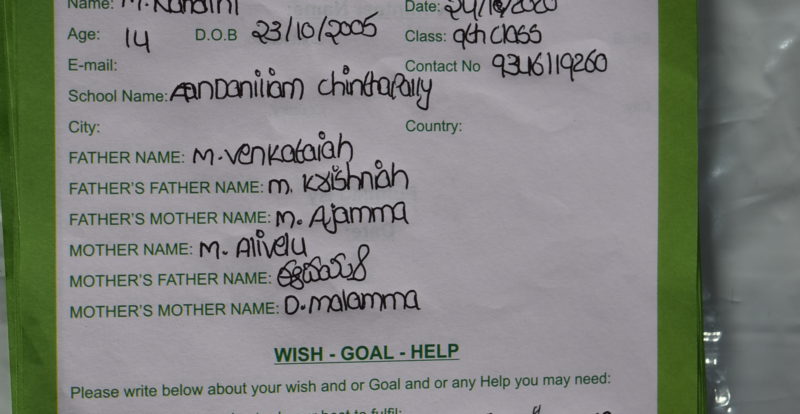 Name: M. Nandini Date: 24/10/2020
Age: 14 D.O.B 23/10/2005 Class: 9th class
E-mail: Contact No 9346119260
School Name: chinthapally
City: Country:
FATHER NAME: M. venkataiah
FATHER'S FATHER NAME: m. Krishniah
FATHER'S MOTHER NAME: m. Ajamma
MOTHER NAME: M. Alivelu
MOTHER'S FATHER NAME:
MOTHER'S MOTHER NAME: D. malamma
WISH - GOAL - HELP
Please write below about your wish and or Goal and or any Help you may need: